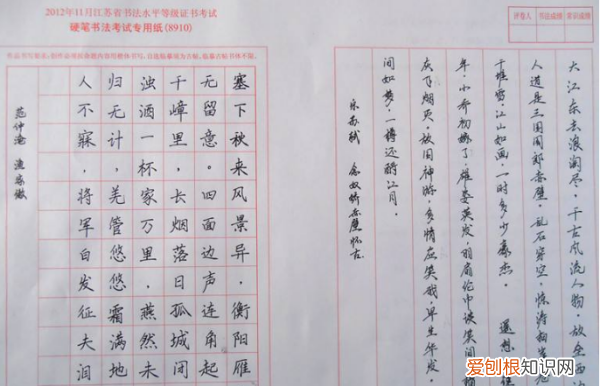 2012年11月江苏省书法水平等级证书考试
硬笔书法考试专用纸(8910)
塞下秋来风景异，衡阳雁
无留意。四面边声连角起
千嶂里，长烟落日孤城闭
浊酒一杯家万里，燕然未
归无计，羌管悠悠霜满地
人不寐，将军白发征夫泪
范仲淹 渔家傲
评卷人 书法成绩 常识成绩
大江东去浪淘尽，千古风流人物，故垒西
人道是三国周郎赤壁。乱石穿空，惊涛拍岸
千堆雪。江山如画，一时多少豪杰。 遥想
年，小乔初嫁了，雄姿英发，羽扇纶巾谈笑间
灰飞烟灭，故国神游，多情应笑我，早生华发
间如梦，一樽还酹江月。
录苏轼 念奴娇赤壁怀古
爱刨根知识网
www.baogenzhishi.com